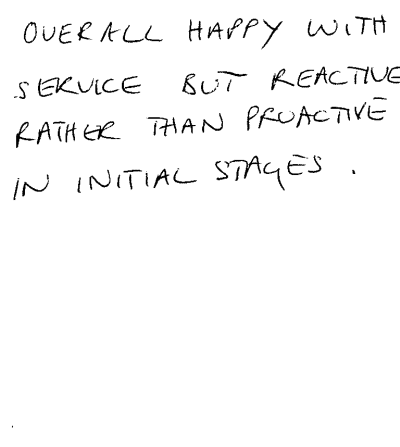 OVERALL HAPPY WITH
SERVICE BUT REACTIVE
RATHER THAN PROACTIVE
IN INITIAL STAGES.